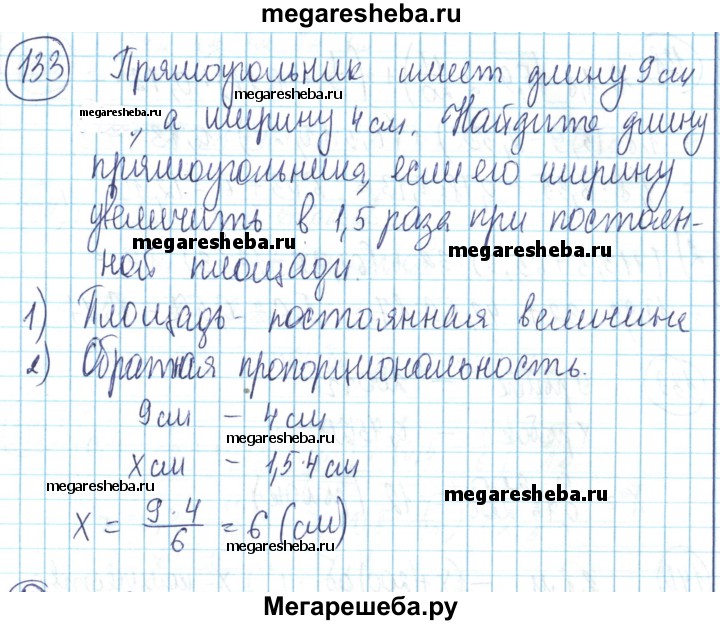 megaresheba.ru
133 Прямоугольник имеет длину 9 см
megaresheba.ru
megaresheba.ru , а ширину 4 см. Найдите длину
прямоугольника, если его ширину
увеличить в 1,5 раза при постоян-
megaresheba.ru megaresheba.ru
ной площади.
1) Площадь - постоянная величина
2) Обратная пропорциональность.
9 см - 4 см
megaresheba.ru
x см - 1,5·4 см
megaresheba.ru megaresheba.ru
x = 9·4/6 = 6 (см)
megaresheba.ru
Мегарешеба.ру